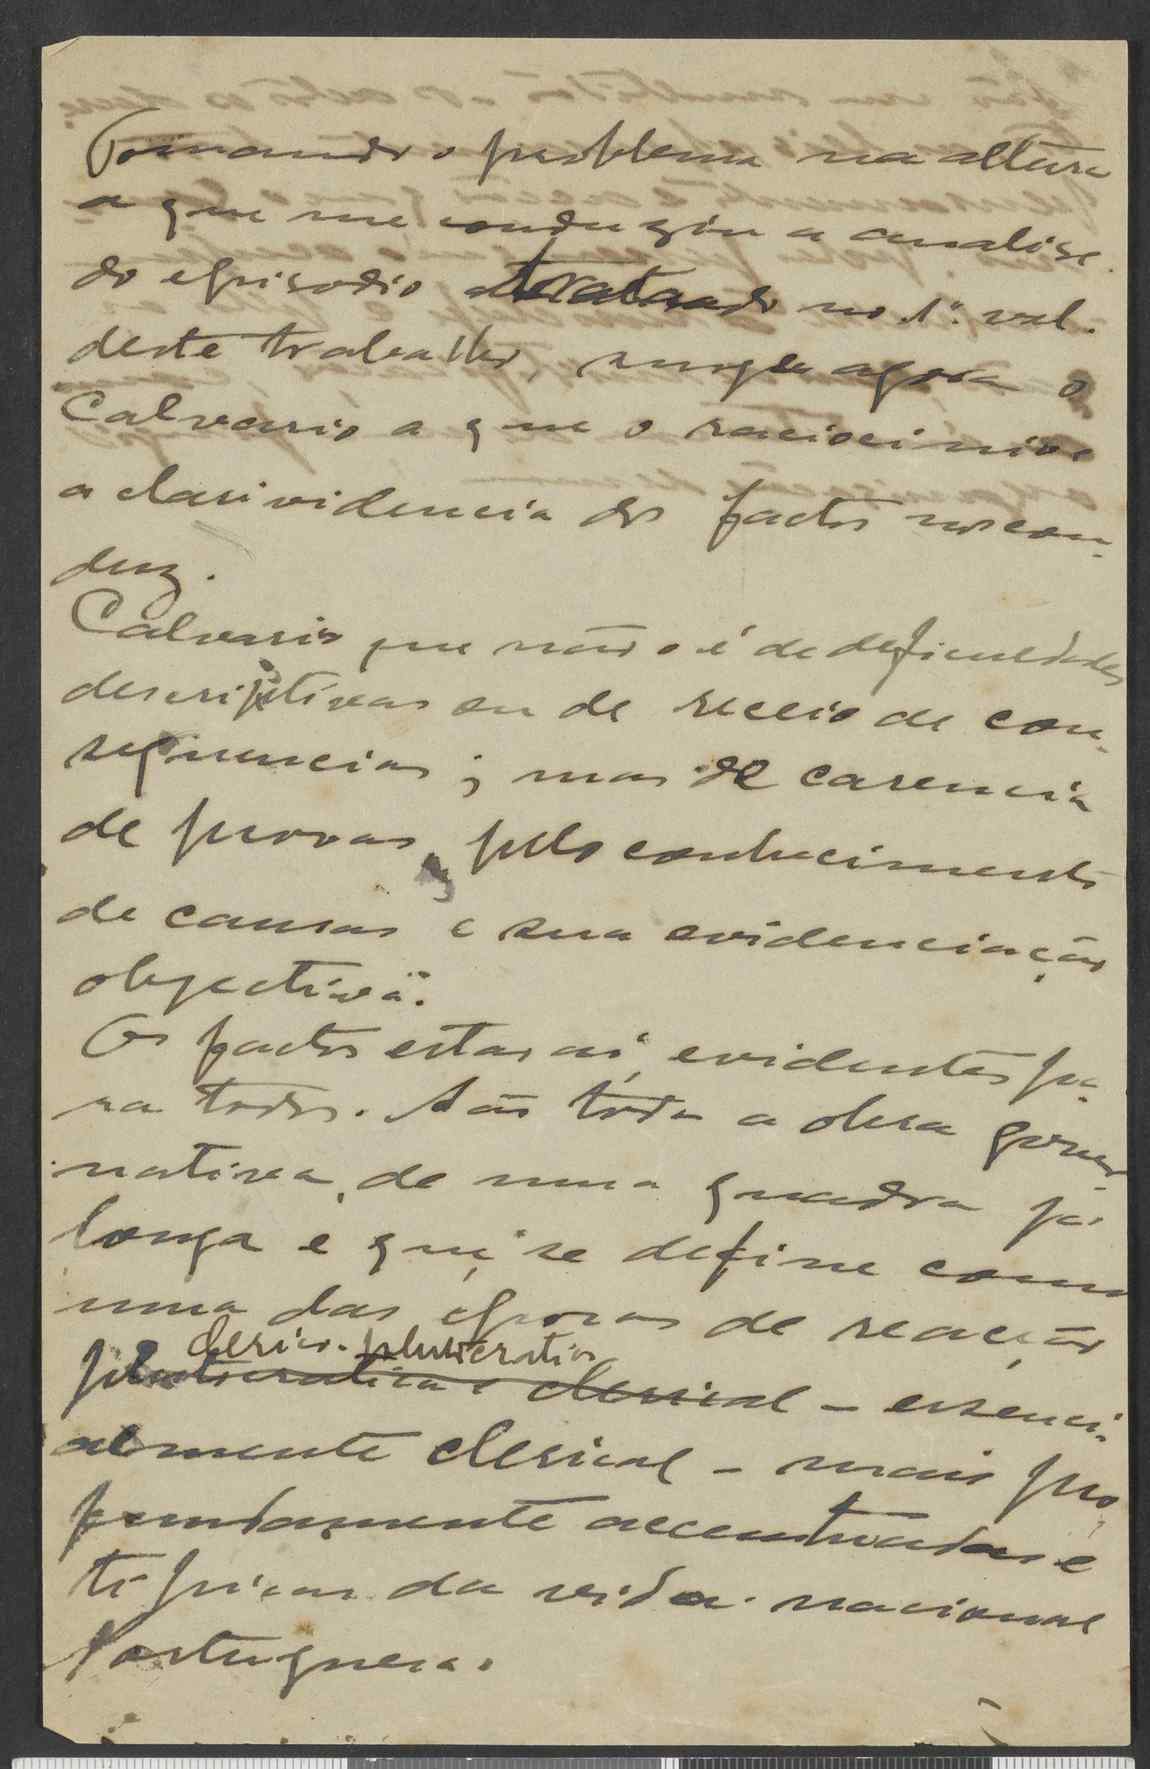 Tomando o problema na altura
a que me conduziu a analise
do episodio tratado no 1º. vol.
deste trabalho, surge agora o
Calvario a que o raciocinio e
a clarividencia dos factos nos con-
duz.
Calvario que não o é de deficuldades
descriptivas ou de receio de con-
sequencias; mas de carencia
de provas, pelo conhecimento
de causas e sua evidenciação
objectiva.
Os factos estão aí, evidentes pa-
ra todos. São toda a obra gover-
nativa, de uma quadra já
longa e que se define como
uma das épocas de reacção
clerico-plutocratica
plutocratica e clerical - essenci-
almente clerical - mais pro-
fundamente accentuadas e
tipicas da vida nacional
Portuguesa.